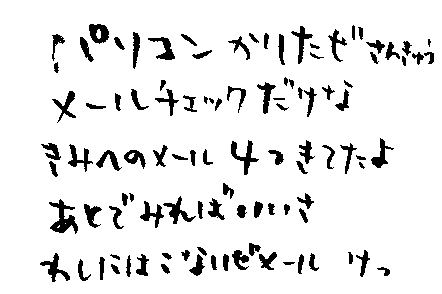 パソコンかりたぜ さんきゅう
メールチェックだけな
きみへのメール4つきてたよ
あとでみればいいさ
わしにはこないぜメール けっ